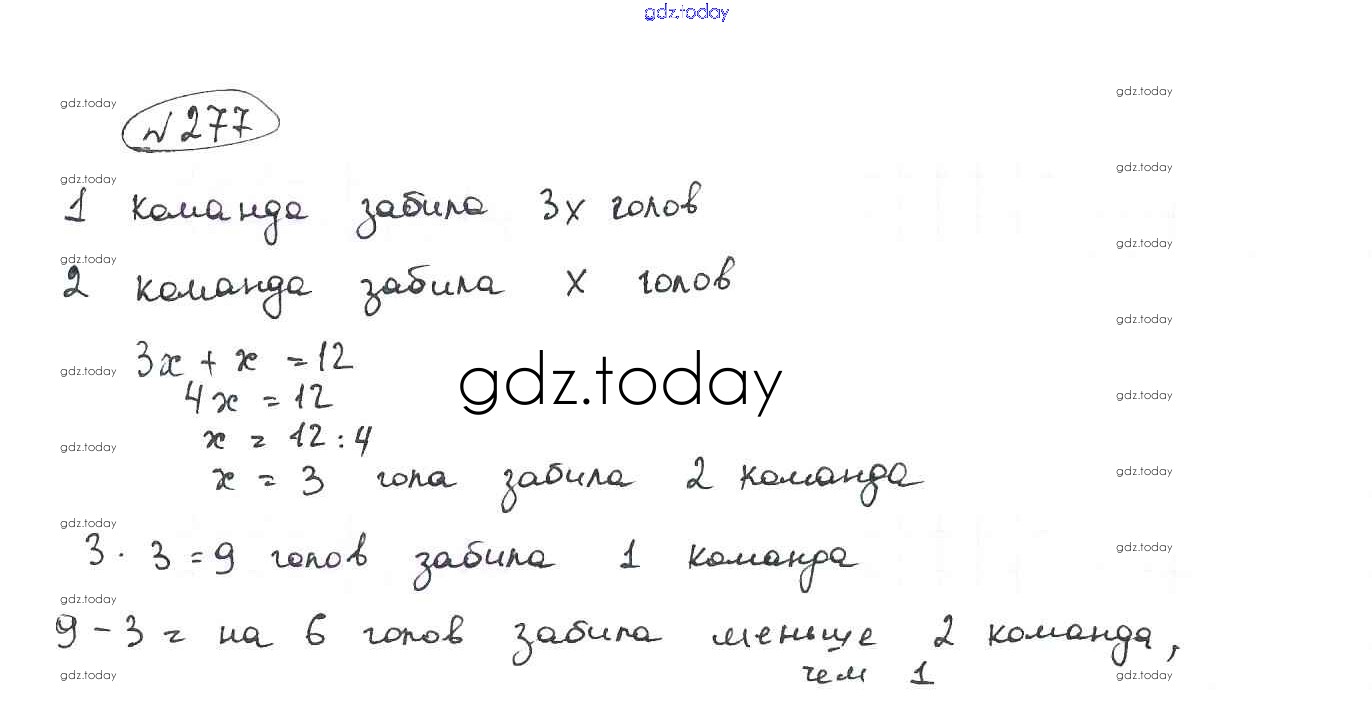 gdz.today
gdz.today
gdz.today
№277
gdz.today
gdz.today
1 команда забила 3х голов
gdz.today
gdz.today
2 команда забила х голов
gdz.today
3х + х = 12
gdz.today
gdz.today
4х = 12
gdz.today
х = 12 : 4
gdz.today
х = 3 гола забила 2 команда
gdz.today
gdz.today
3 · 3 = 9 голов забила 1 команда
gdz.today
gdz.today
9 - 3 = на 6 голов забила меньше 2 команда,
чем 1
gdz.today
gdz.today